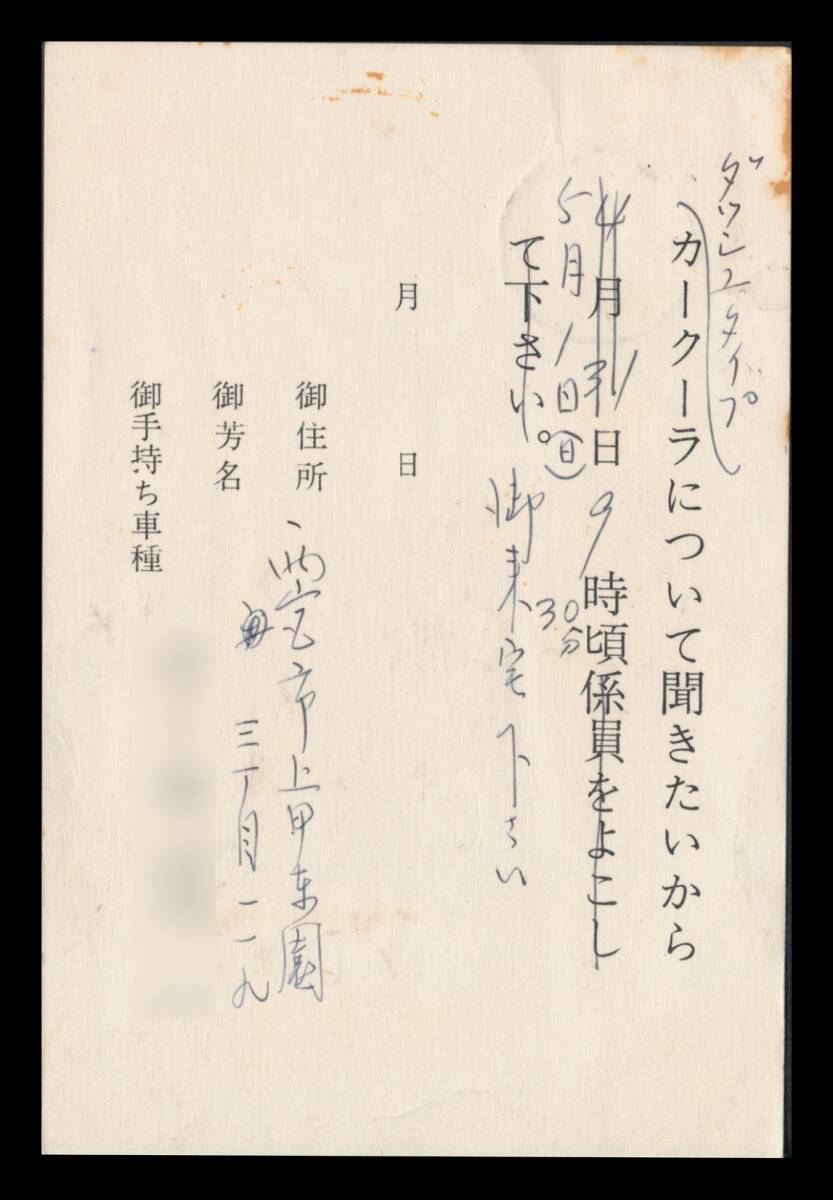 ダッシュタイプ
カークーラについて聞きたいから
4月31日9時頃係員をよこし
5月1日(日)30分
て下さい。
御来宅下さい
月 日
御住所 西宮市上甲東園
三丁目二一九
御芳名
御手持ち車種